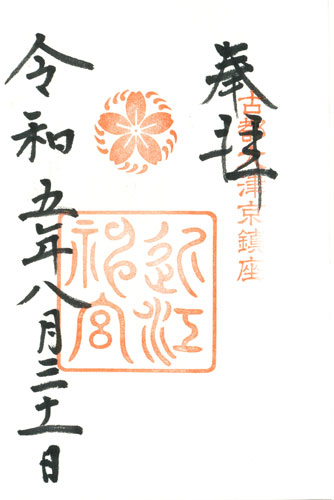 奉拝
古都大津京鎮座
近江
神宮
令和五年八月三十一日